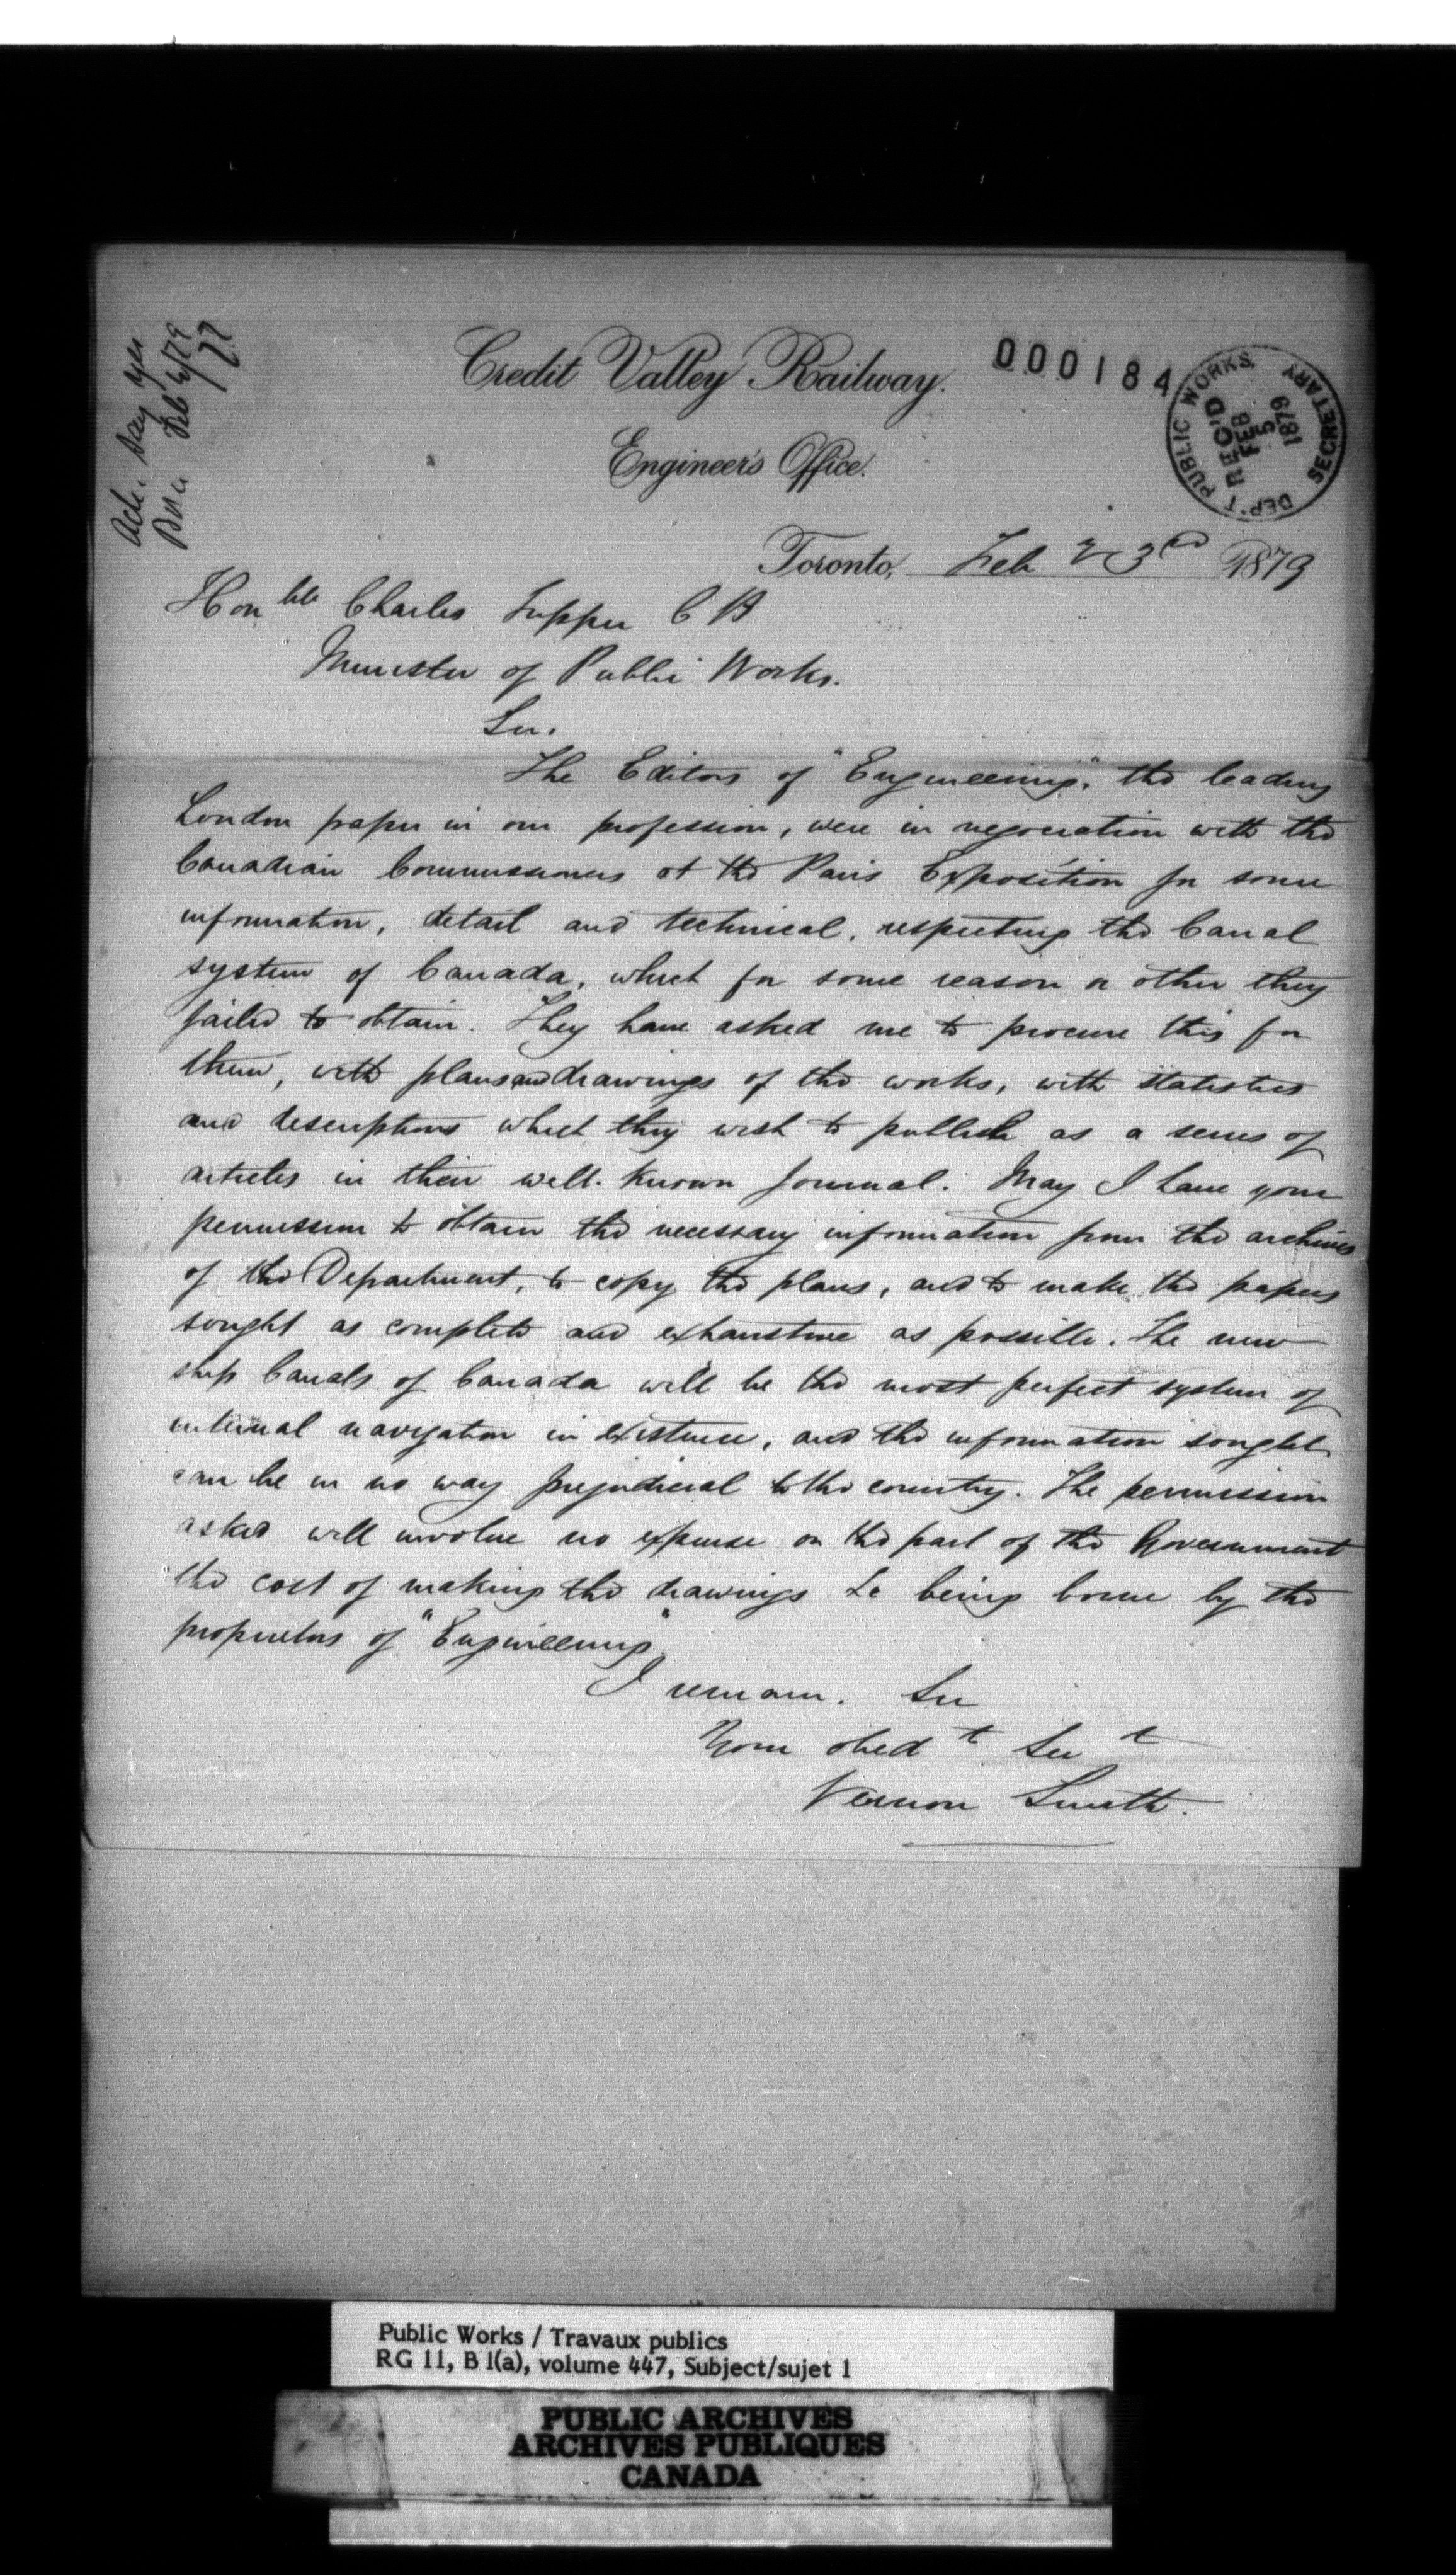 Credit Valley Railway.
000184
Engineer's Office.
DEP'T PUBLIC WORKS, SECRETARY
REC'D
FEB
5
1879
Toronto, Feb 3rd 1879
Honble Charles Tupper C B
Minister of Public Works.
Sir.
The Editors of "Engineering", the leading
London paper in our profession, were in negociation with the
Canadian Commissioners at the Paris Exposition for some
information, detail and technical, respecting the Canal
system of Canada, which for some reason or other they
failed to obtain. They have asked me to procure this for
them, with plans and drawings of the works, with statistics
and descriptions which they wish to publish as a series of
articles in their well-known Journal. May I have your
permission to obtain the necessary information from the archives
of the Department, to copy the plans, and to make the papers
sought as complete and exhaustive as possible. The new
ship Canals of Canada will be the most perfect system of
internal navigation in existence, and the information sought
can be in no way prejudicial to the country. The permission
asked will involve no expense on the part of the Government
the cost of making the drawings &c being borne by the
proprietors of "Engineering"
I remain. Sir
Your obedt Servt
Vernon Smith.
Ack. Say yes
Feb 6/79
Public Works / Travaux publics
RG 11, B 1(a), volume 447, Subject/sujet 1
PUBLIC ARCHIVES
ARCHIVES PUBLIQUES
CANADA